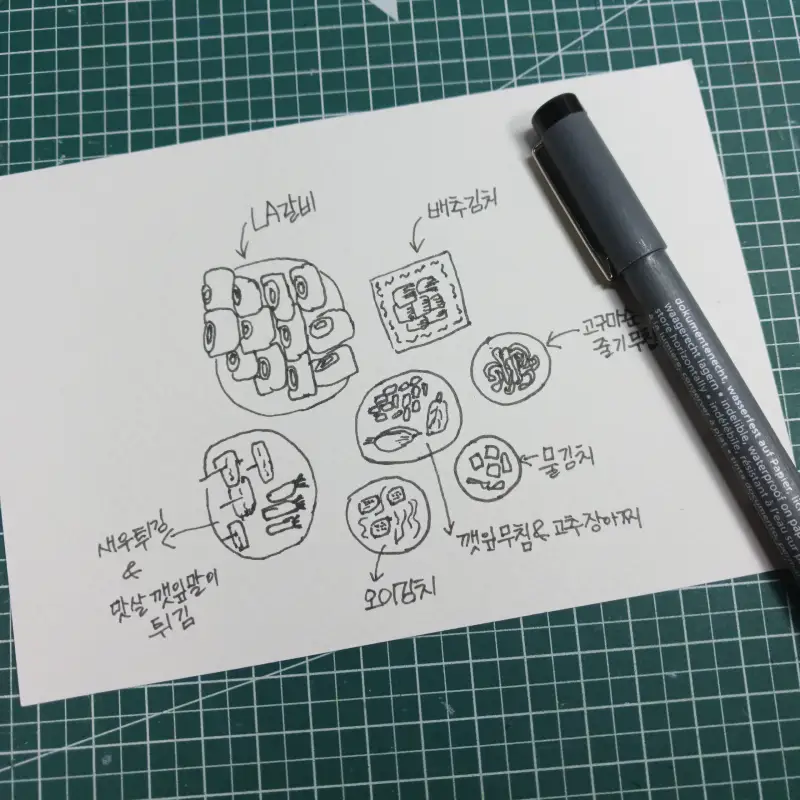 LA갈비
배추김치
고구마순
줄기무침
물김치
깻잎무침 & 고추장아찌
오이김치
새우튀김
&
맛살 깻잎말이
튀김
dokumentenecht, wasserfest auf Papier,
waagerecht lagern • indelible, waterproof on
store horizontally • indélébile, résistant à l'eau sur